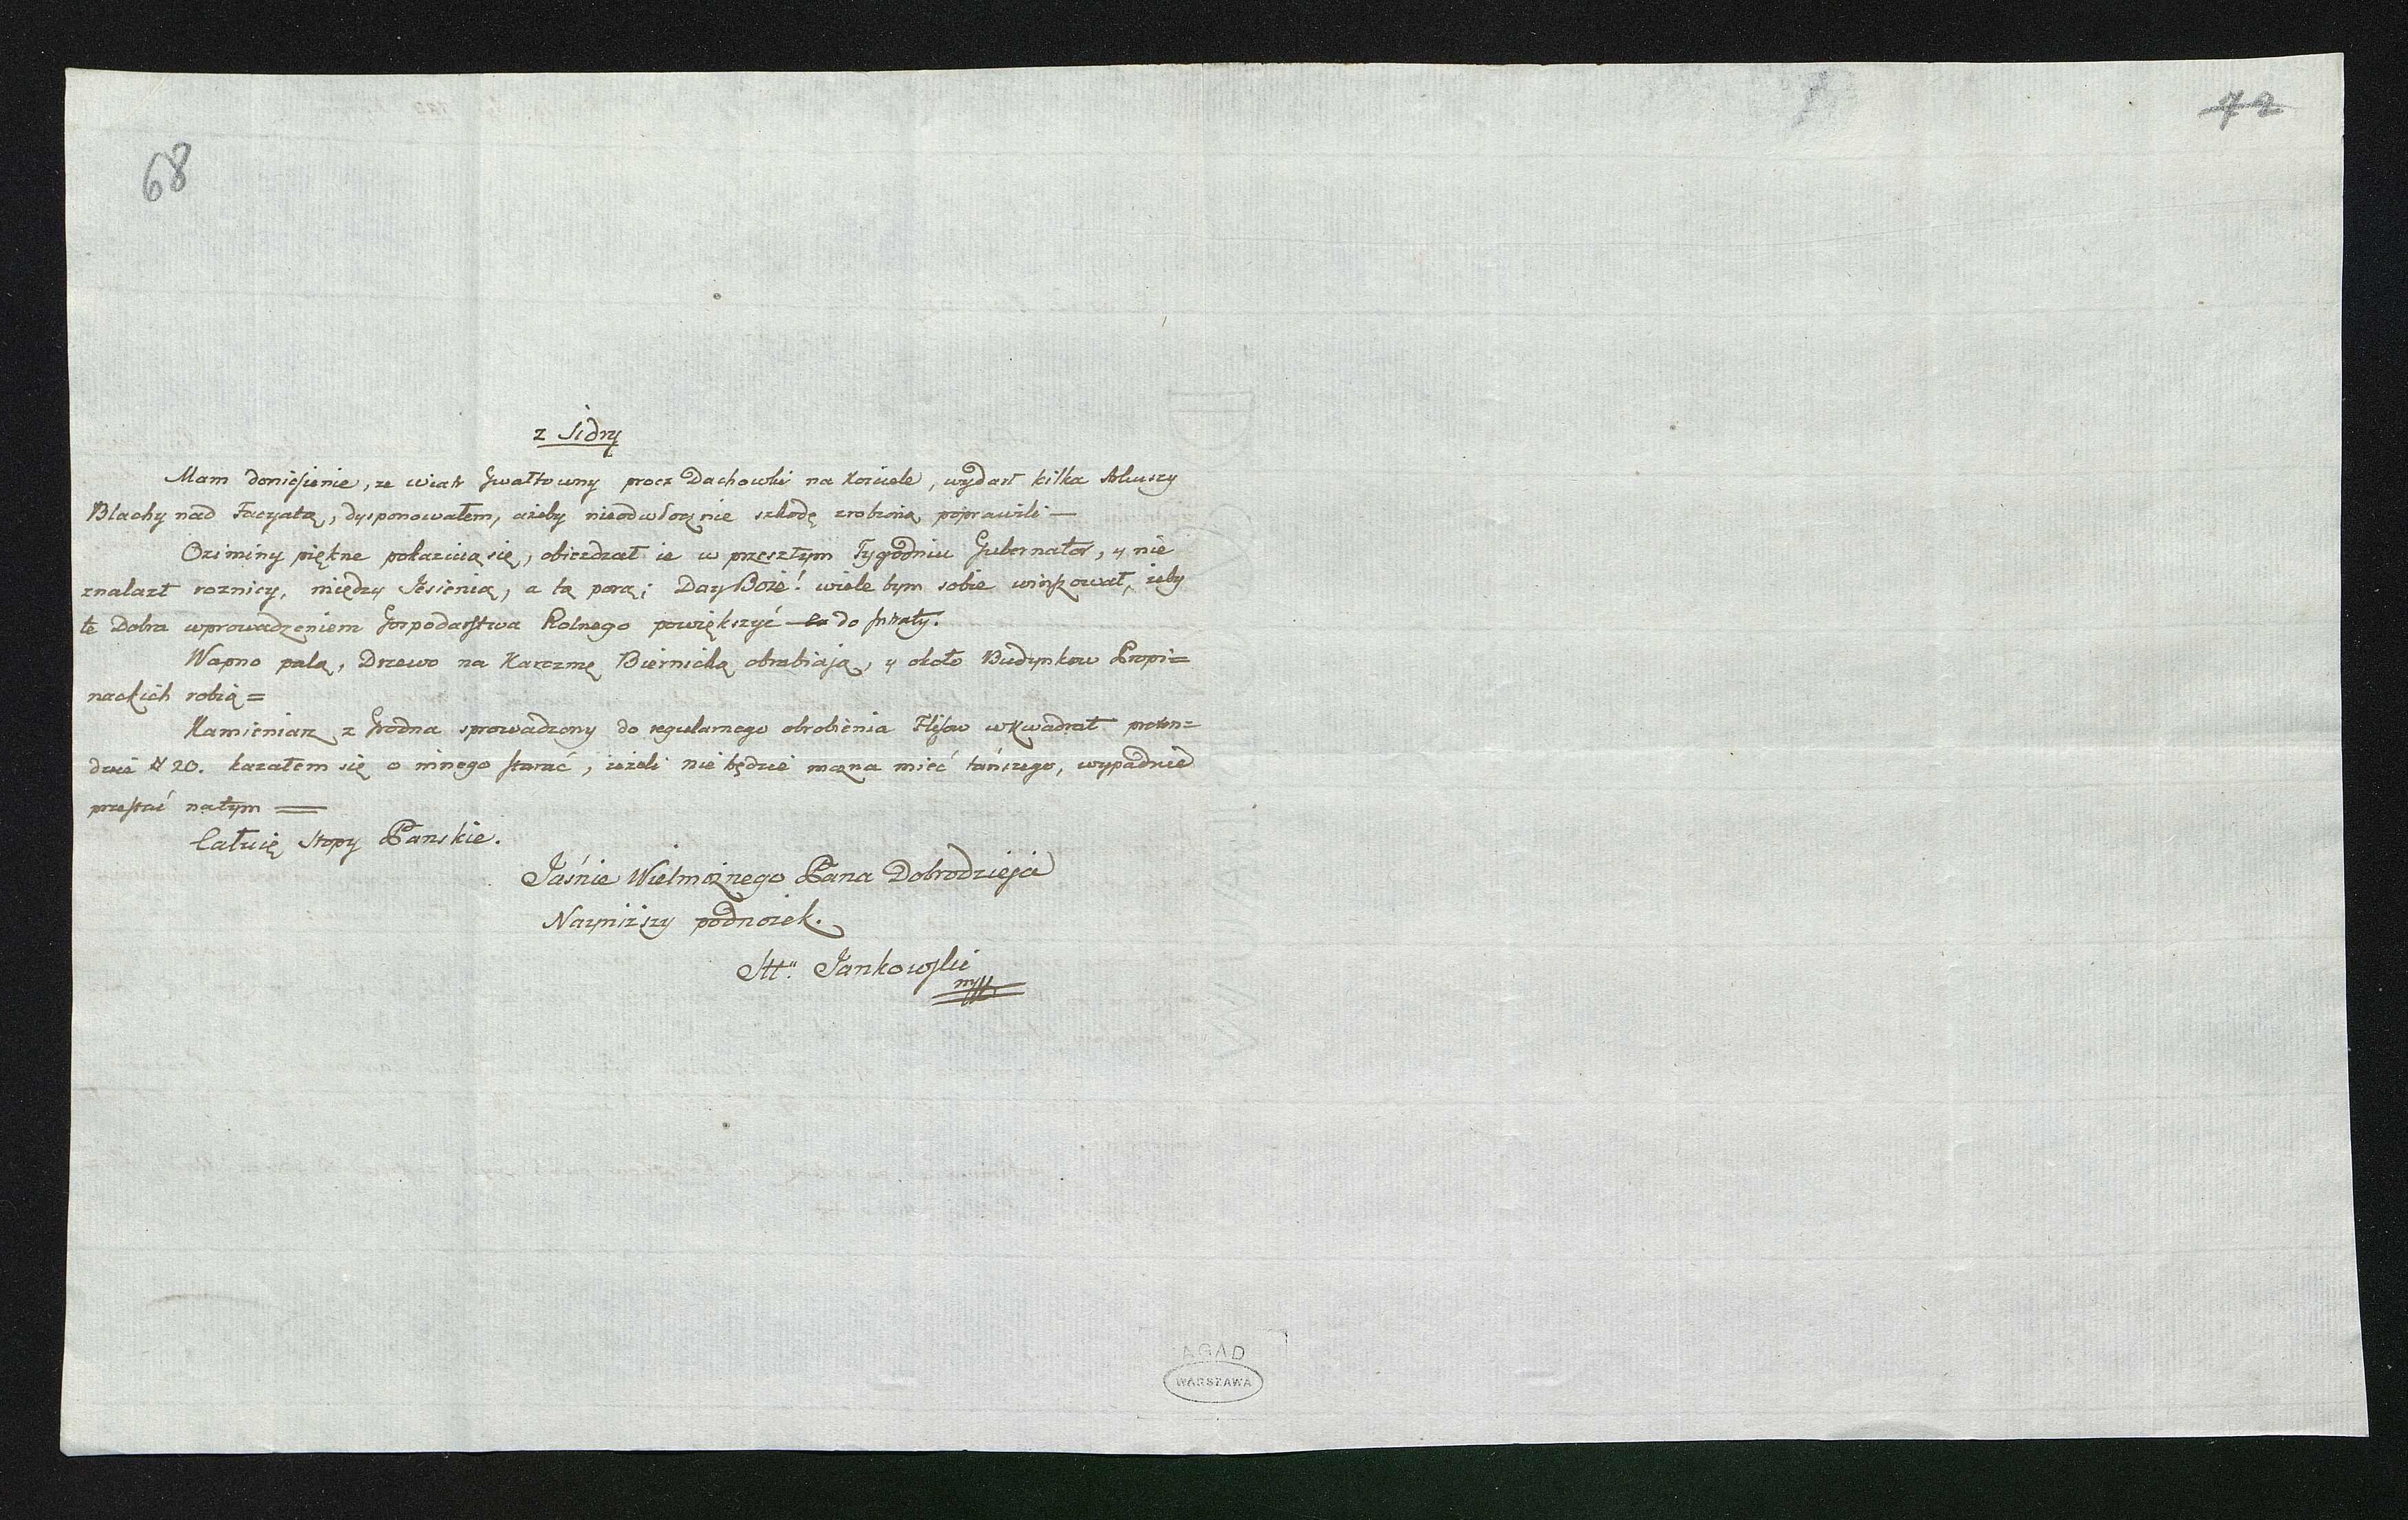 68
72
z Sidry
Mam doniesienie, ze wiatr Gwałtowny procz Dachowki na Kosciele, wydarł kilka Arkuszy
Blachy nad Facyatą, dysponowałem, ażeby nieodwłocznie szkodę zrobioną poprawili —
Oziminy piękne pokazuią się, obiezdzał ie w przeszłym Tygodniu Gubernator, y nie
znalazł roznicy, między Jesienią, a tą porą; Day Boże! wiele bym sobie winszował, żeby
te Dobra wprowadzeniem Gospodarstwa Rolnego powiększyć do
Wapno palą, Drzewo na Karczmę Biernicką obrabiają, y około Budynkow Propi=
nackich robią =
Kamieniarz z Grodna sprowadzony do regularnego obrobienia Flisow w Kwadrat preten=
duie # 20. kazałem się o innego starać, ieżeli nie będzie można mieć tańszego, wypadnie
przestać natym =
Całuię Stopy Panskie.
Jaśnie Wielmożnego Pana Dobrodzieja
Nayniższy podnożek.
Jankowski
mpp
AGAD
WARSZAWA